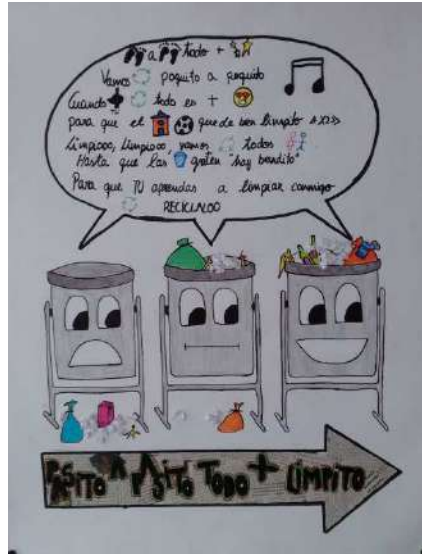 a todo +
Vamos poquito a poquito
Cuando todo es +
para que el quede bien limpito
Limpiooo, Limpiooo, vamos todos
Hasta que las griten "hay bendito"
Para que TU aprendas a limpiar conmigo
RECICLALOO
PASITO A PASITO TODO + LIMPITO